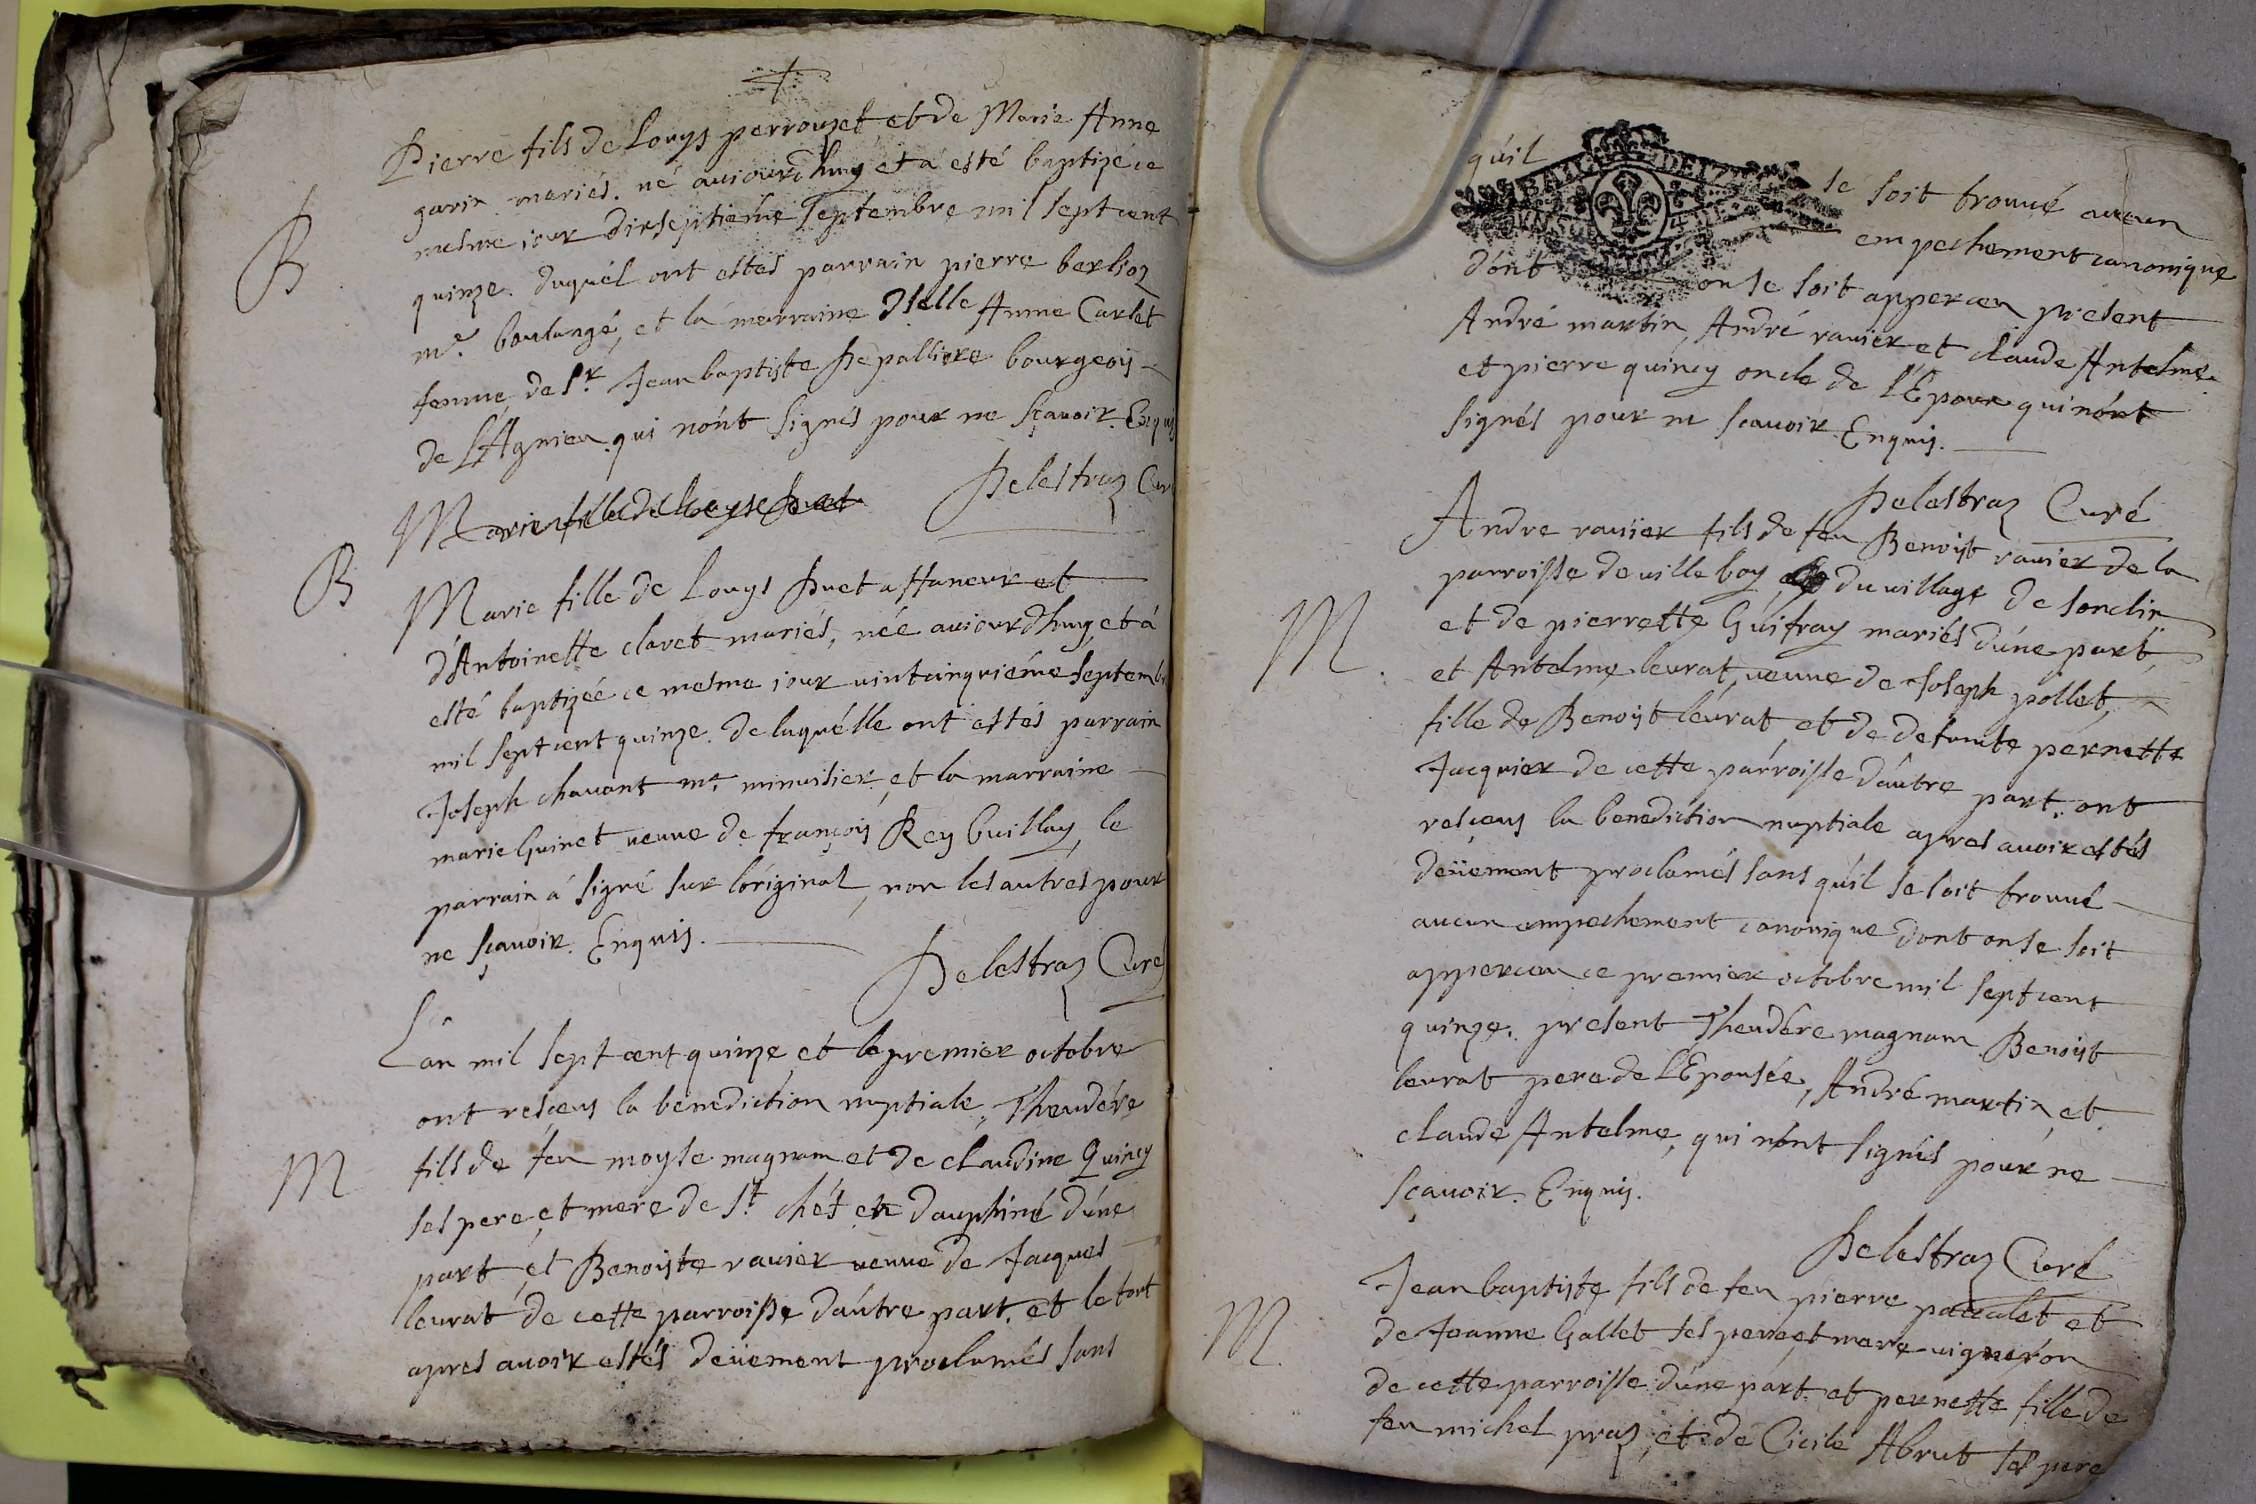 B
Pierre fils de Louys perrouzet et de Marie Anne
garin mariés. né auiourdhuy et a esté baptizé ce
mesme iour dixseptiéme septembre mil sept cent
quinze. duquél ont estés parrain pierre berlioz
mᵉ. boulangé, et la marraine Dselle Anne Carlet
femme de Sʳ Jean baptiste De palliere bourgeois
de L'Agnieu. qui nónt signés pour ne sçavoir. Enquis
Delestraz Curé
Marie fille de Louys
B
Marie fille de Louys Duet affaneur et
d'Antoinette claret mariés, née auiourdhuy, et à
esté baptizée ce mesme iour vintcinquiéme septembr
mil sept cent quinze. de laquélle ont estés parrain
Joseph chavant mᵉ minuisier et la marraine
marie Guinet veuve de françois Rey Guillay, le
parrain á signé sur l'original, non les autres pour
ne sçavoir. Enquis.
Delestraz Curé
M
L'an mil sept cent quinze et le premier octobre
ont resceus la benediction nuptiale, Theudére
fils de feu moyse magnam et de claudine Quincy
ses pere et mere de Sᵗ. chéf en dauphiné d'úne
part et Benoiste ravier veuve de Jacques
leurat de cette parroisse d'aûtre part. et le tout
apres avoir estés deüement proclamés sans
qu'il se soit trouué aucun
empechement canonique
dónt on se soit apperceu present
André martin, André ravier et claude Antelme
et pierre quincy oncle de l'Epoux qui nónt
signés pour ne sçavoir Enquis.
Delestraz Curé
M.
Andre ravier fils de feu Benoist ravier de la
parroisse de ville boy, du village de Sonclin
et de pierrette Guifray mariés d'úne part,
et Antelme leurat, veuve de Joseph pollet,
fille de Benoist leurat et de defunte pernette
Jacquier de cette párroisse d'aûtre part, ont
resceus la benediction nuptiale apres avoir estés
deüement proclamés sans qu'il se soit trouué
aucun empechement canonique dont on se soit
apperceu ce premier octobre mil sept cent
quinze. present Theudére magnam Benoist
leurat pere de l'Epousée, André martin, et
claude Antelme, qui nónt signés pour ne
sçavoir. Enquis.
Delestraz Curé
M.
Jean baptiste fils de feu pierre paccalet et
de Jeanne Gallet ses pere et mere vigneron
de cette parroisse d'úne part et pernette fille de
feu michel praz, et de Cicile Abrut ses pere